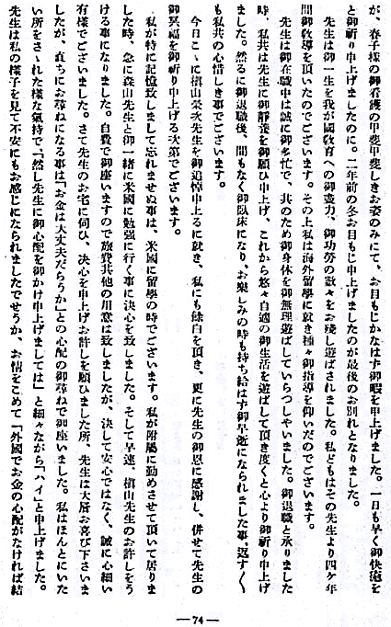 が、春子様の御看護の甲斐甲斐しきお姿のみにて、お目もじかなはず御暇を申上げました。一日も早く御快癒を
と御祈り申上げましたのに。二年前の冬お目もじ申上げましたのが最後のお別れとなりました。
先生は御一生を我が國敎育への御盡力、御功勞の數々をお殘し遊ばされました。私どもはその先生より四ヶ年
間御敎導を頂いたのでございます。その上私は海外留學に就き種々御指導を仰いだのでございます。
先生は御在職中は誠に御多忙で、其のため御身体を御無理遊ばしていらつしやいました。御退職と承りました
時、私共は先生に御靜養を御願ひ申上げ、これから悠々自適の御生活を遊ばして頂き度くと心より御祈り申上げ
ました。然るに御退職後、間もなく御臥床になり、お樂しみの時も持ち給はず御早逝になられました事、返す〲
も私共の心惜しき事でございます。
今日こゝに槇山榮次先生を御追悼申上るに就き、私にも餘白を頂き、更に先生の御恩に感謝し、併せて先生の
御冥福を御祈り申上げる次第でございます。
私が特に記憶致しまして忘れませぬ事は、米國に留學の時でございます。私が附屬に勤めさせて頂いて居りま
した時、急に槇山先生と御一緒に米國に勉强に行く事に決心を致しました。そして早速、槇山先生のお許しをう
ける事になりました。自費で御座いますので旅費其他の用意は致しましたが、決して安心ではなく、誠に心細い
有樣でございました。さて先生のお宅に伺ひ、決心を申上げお許しを願ひました所、先生は大層お喜び下さいま
したが、直ちにお尋ねになる事は「お金は大丈夫だらうか」との心配の御尋ねで御座いました。私はほんとにいた
い所をさゝれた樣な氣持で「然し先生に御心配を御かけ申上げましては」と細々ながら「ハイ」と申上げました。
先生は私の樣子を見て不安にもお感じになられましたでせうか、お情をこめて「外國でお金の心配がなければ結
―74―